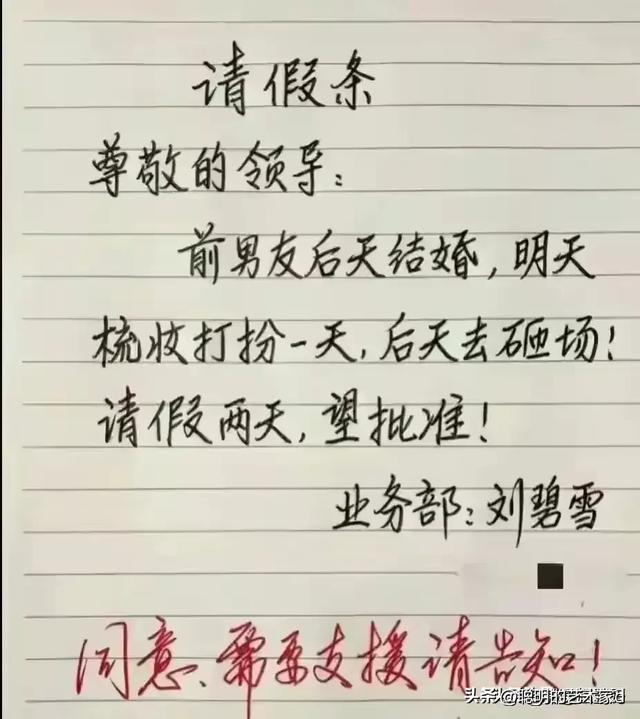 请假条
尊敬的领导：
前男友后天结婚，明天
梳妆打扮一天，后天去砸场！
请假两天，望批准！
业务部：刘碧雪
同意、需要支援请告知！
头条@聪明的艺术家J